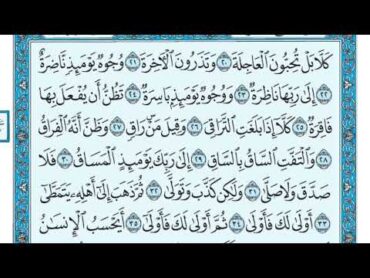 كَلَّا بَلْ تُحِبُّونَ ٱلْعَاجِلَةَ ٢٠ وَتَذَرُونَ ٱلْآخِرَةَ ٢١ وُجُوهٌ يَوْمَئِذٍ نَّاضِرَةٌ
٢٢ إِلَىٰ رَبِّهَا نَاظِرَةٌ ٢٣ وَوُجُوهٌ يَوْمَئِذٍۭ بَاسِرَةٌ ٢٤ تَظُنُّ أَن يُفْعَلَ بِهَا
فَاقِرَةٌ ٢٥ كَلَّآ إِذَا بَلَغَتِ ٱلتَّرَاقِىَ ٢٦ وَقِيلَ مَنْ رَاقٍ ٢٧ وَظَنَّ أَنَّهُ ٱلْفِرَاقُ
٢٨ وَٱلْتَفَّتِ ٱلسَّاقُ بِٱلسَّاقِ ٢٩ إِلَىٰ رَبِّكَ يَوْمَئِذٍ ٱلْمَسَاقُ ٣٠ فَلَا
صَدَّقَ وَلَا صَلَّىٰ ٣١ وَلَٰكِن كَذَّبَ وَتَوَلَّىٰ ٣٢ ثُمَّ ذَهَبَ إِلَىٰٓ أَهْلِهِۦ يَتَمَطَّىٰٓ
٣٣ أَوْلَىٰ لَكَ فَأَوْلَىٰ ٣٤ ثُمَّ أَوْلَىٰ لَكَ فَأَوْلَىٰٓ ٣٥ أَيَحْسَبُ ٱلْإِنسَٰنُ